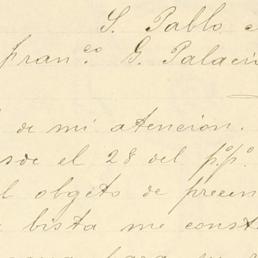 S. Pablo
Fran.co G. Palaci
de mi atencion.
sde el 28 del p.o p.o
l obgeto de precen
bista me const